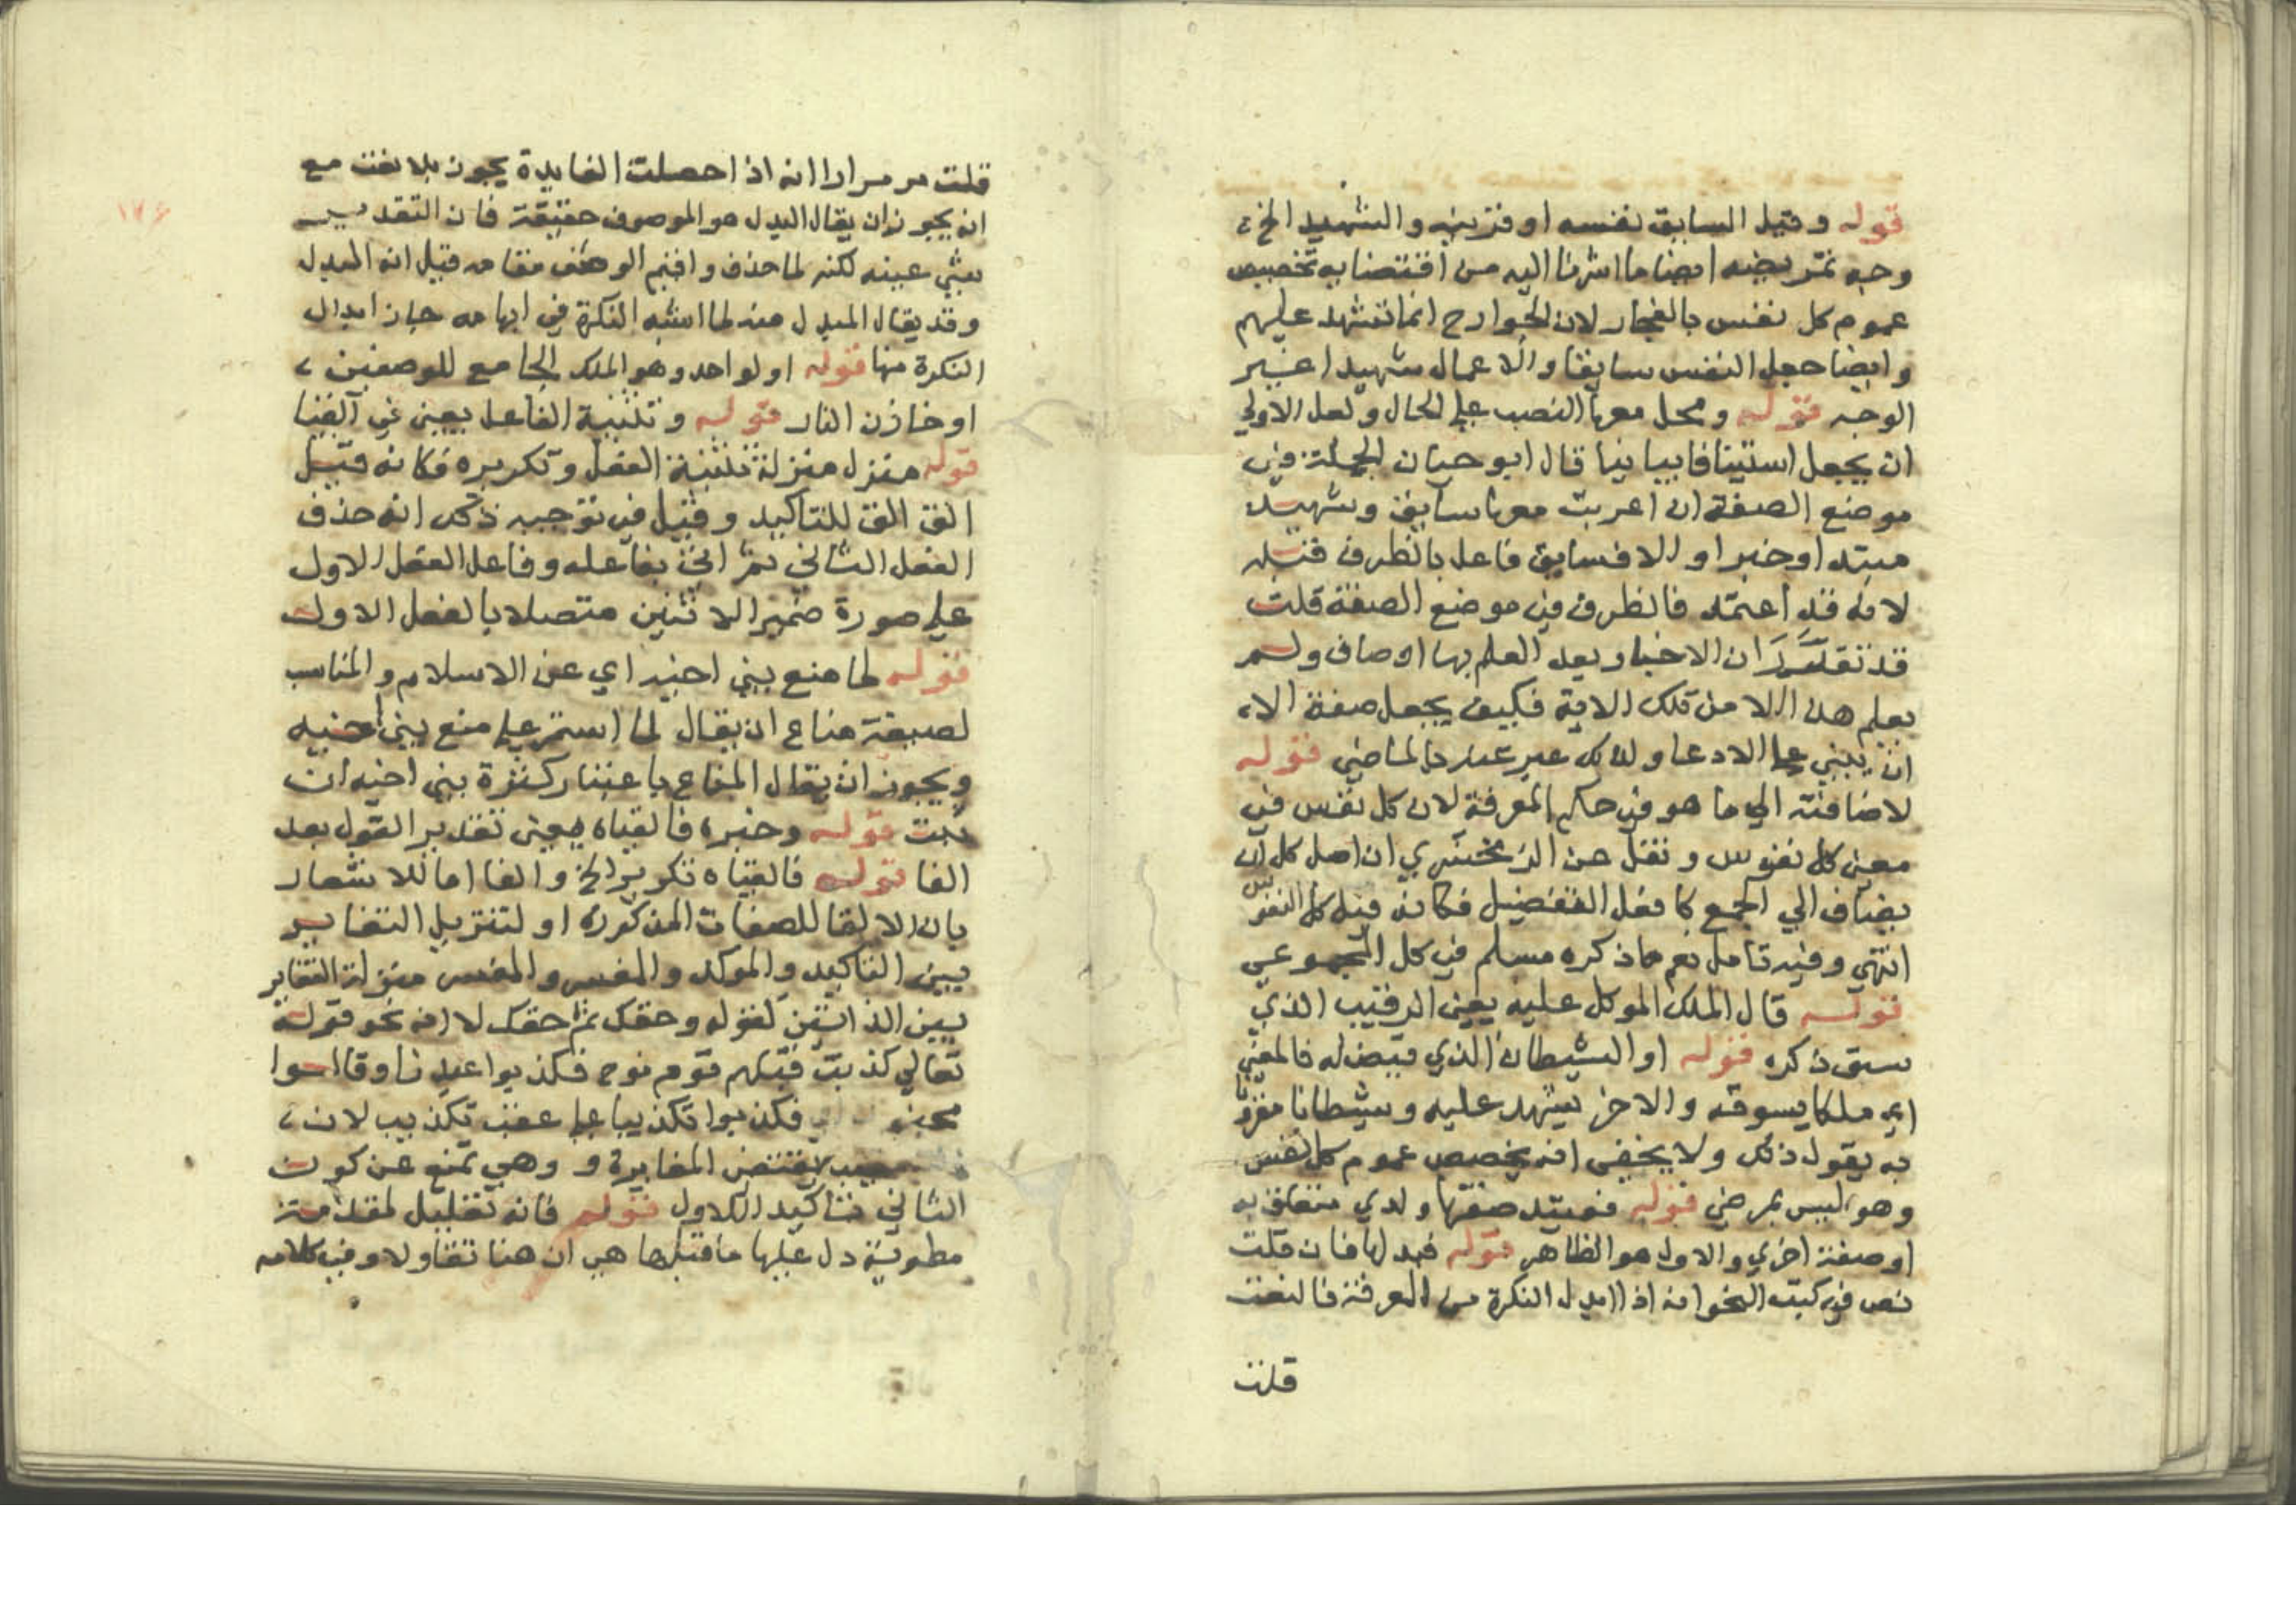 قوله وقيل السابق نفسه او قرينه والشهيد الخ
وجه تمريضه ايضا ما اشرنا اليه من اقتضايه تخصيص
عموم كل نفس بالفجار لان الجوارح انما تشهد عليهم
وايضا جعل النفس سابقا والاعمال شهيدا غير
الوجه قوله ومحل معها النصب على الحال ولعل الاولي
ان يجعل استينافا بيانيا قال ابو حيان الجملة في
موضع الصفة ان اعربت معها سايق وشهيد
مبتدا وخبرا والا فسايق فاعل بالظرف قبله
لانه قد اعتمد فالظرف في موضع الصفة قلت
قد تقرر ان الاخبار بعد العلم بها اوصاف ولم
يعلم هذا الا من تلك الاية فكيف يجعل صفة الا
ان يبني على الادعا ولذلك عبر عنه بالماضي قوله
لاضافته الي ما هو في حكم المعرفة لان كل نفس في
معني كل نفوس ونقل عن الزمخشري ان اصل كل ان
يضاف الي الجمع كافعل التفضيل فكانه قيل كل النفوس
انتهي وفيه تامل نعم ما ذكره مسلم في كل المجموعي
قوله قال الملك الموكل عليه يعني الرقيب الذي
سبق ذكره قوله او الشيطان الذي قيض له فالمعني
اي ملكا يسوقه والاخر يشهد عليه وشيطانا مقرونا
به يقول ذلك ولا يخفي انه يخصص عموم كل نفس
وهو ليس بمرضي قوله فعتيد صفتها ولدي متعلق به
او صفة اخري والاول هو الظاهر قوله فبدلها فان قلت
نص في كتب النحو انه اذا ابدل النكرة من المعرفة فالنعت
قلت
١٧٦
قلت مر مرارا انه اذا حصلت الفايدة يجوز بلا نعت مع
انه يجوز ان يقال البدل هو الموصوف حقيقة فان التقدير
شي عتيد لكنه لما حذف واقيم الوصف مقامه قيل انه البدل
وقد يقال المبدل منه لما اشبه النكرة في ابهامه جاز ابدال
النكرة منها قوله او لواحد وهو الملك الجامع للوصفين
او خازن النار قوله وتثنية الفاعل يعني في القيا
قوله منزل منزلة تثنية الفعل وتكريره فكانه قيل
الق الق للتاكيد وقيل في توجيه ذلك انه حذف
الفعل الثاني ثم اتي بفاعله وفاعل الفعل الاول
على صورة ضمير الاثنين متصلا بالفعل الاول
قوله لما منع بني اخيه اي عن الاسلام والمناسب
لصيغة مناع ان يقال لما استمر على منع بني اخيه
ويجوز ان يقال المناع باعتبار كثرة بني اخيه ان
ثبت قوله وخبره فالقياه بمعني تقدير القول بعد
الفا قوله فالقياه تكرير الخ والفا اما للاشعار
بان الالقا للصفات المذكورة او لتنزيل التغاير
بين التاكيد والموكد والمفسر والمفسر منزلة التغاير
بين الذاتين كقوله وحقك ثم حقك لا انه نحو قوله
تعالي كذبت قبلهم قوم نوح فكذبوا عبدنا وقالوا
مجنو فكذبوا تكذيبا على عقب تكذيب لان
يقتضي المغايرة و وهي تمنع عن كون
الثاني تاكيدا للاول قوله فانه تعليل لمقدمة
مطوية دل عليها ما قبلها هي ان هنا تقاولا وفي كلامه